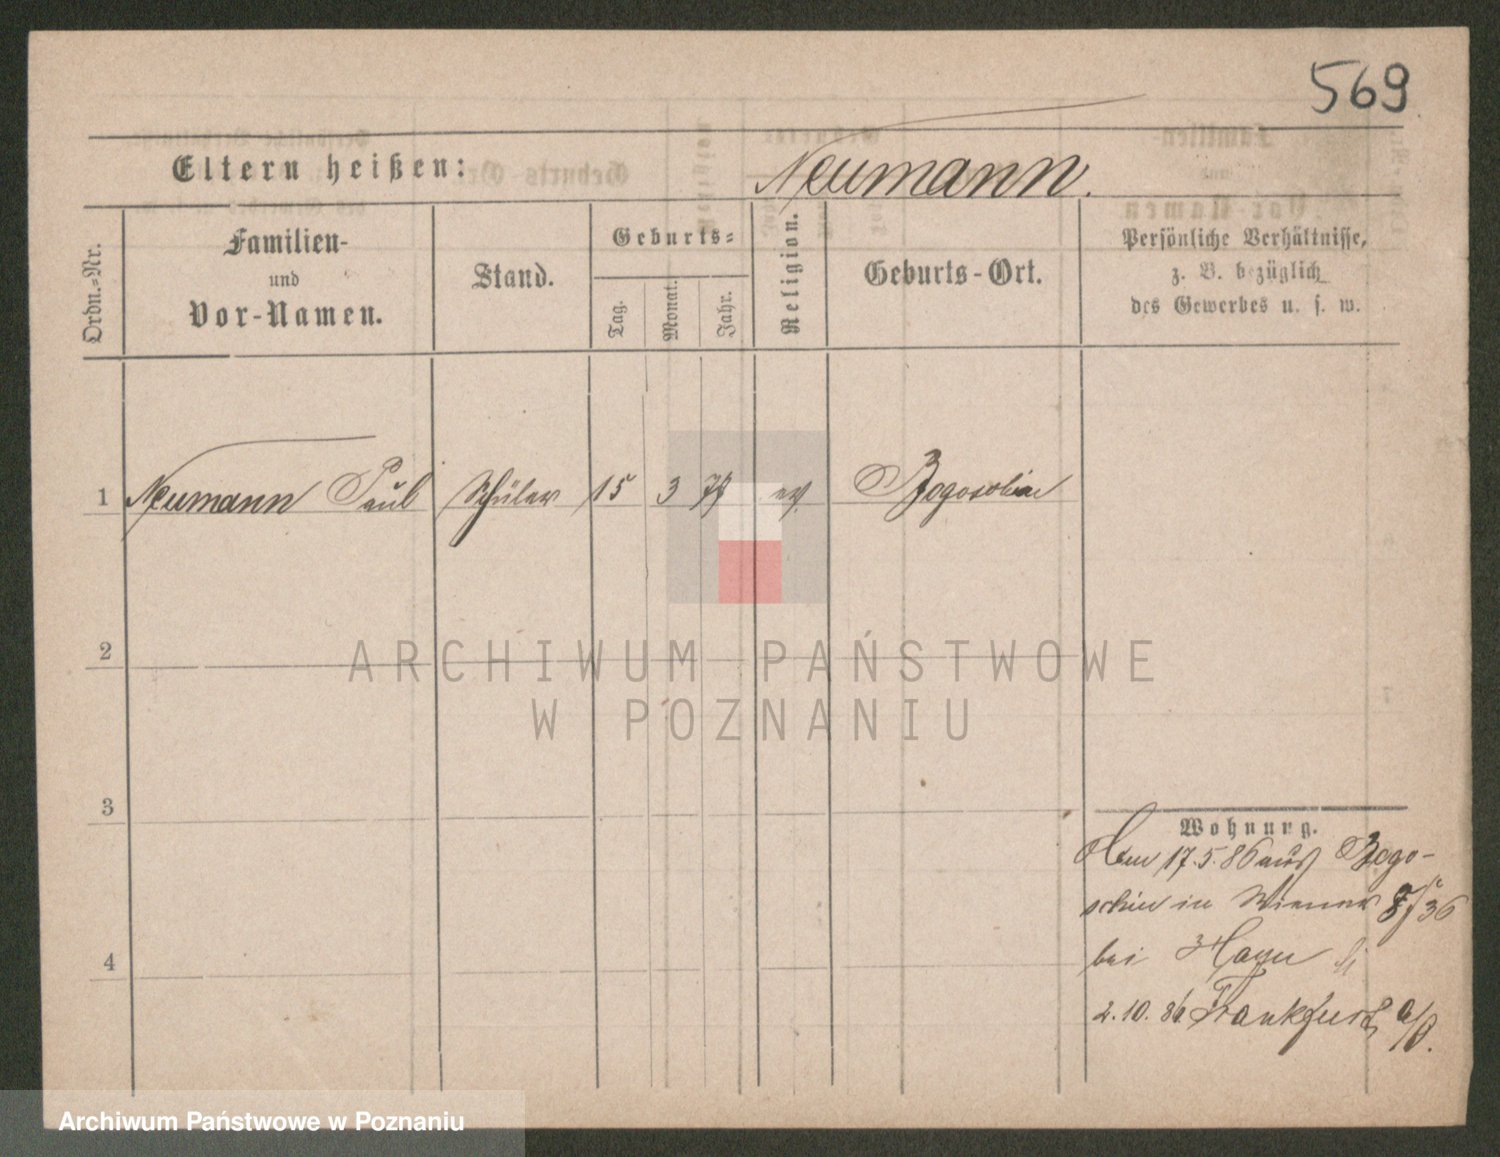 569
Eltern heißen: Neumann.
Ordn.-Nr.
Familien-
und
Vor-Namen.
Stand.
Geburts-
Tag.
Monat.
Jahr.
Religion.
Geburts-Ort.
Persönliche Verhältnisse,
z. B. bezüglich
des Gewerbes u. s. w.
1 Neumann Paul Schüler 15 3 77 ev.
2
ARCHIWUM PAŃSTWOWE
W POZNANIU
3
Wohnung.
17.5.86 aus Rogo-
in 36
bei
4
2.10.86 Frankfurt a/O.
Archiwum Państwowe w Poznaniu